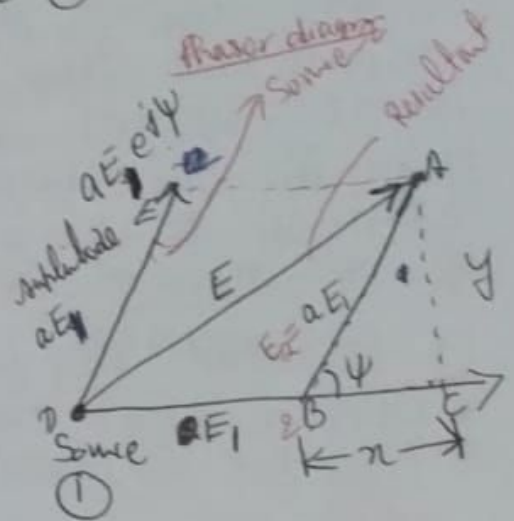 Phasor diagram
Source
Resultant
aE₁ e^jψ
Amplitude
aE₁
E
A
E₂=aE₁
y
ψ
D
Source
①
E₁
2
B
C
x